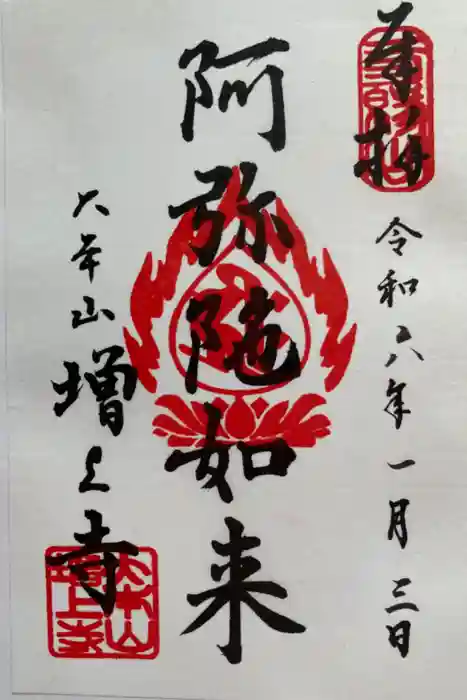 奉拝
令和六年一月三日
阿弥陀如来
大本山
増上寺
大本山
増上寺